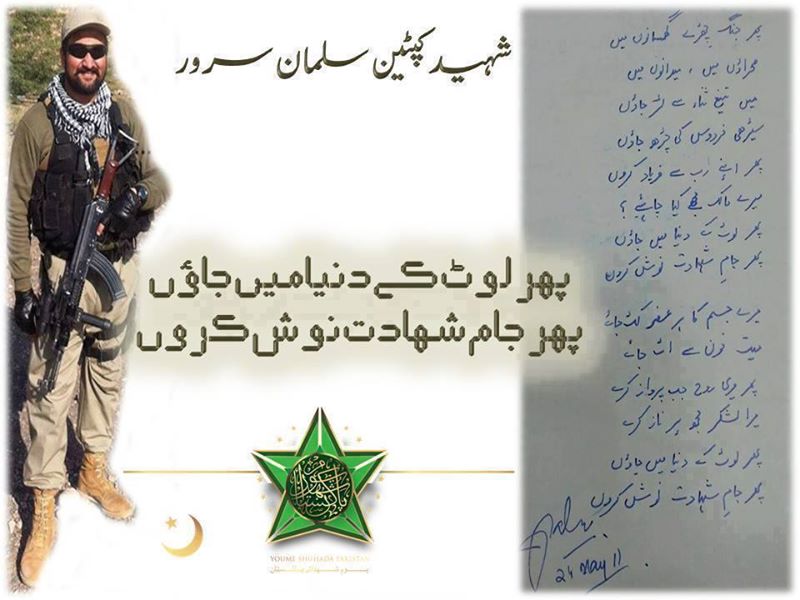 شہید کپٹین سلمان سرور
پھر لوٹ کے دنیا میں جاؤں
پھر جام شہادت نوش کروں
YOUME SHUHADA PAKISTAN
یوم شہدائے پاکستان
پھر جنگ چھڑے گھمسانوں میں
صحراؤں میں ، میدانوں میں
میں تیغ سے لڑ جاؤں
سیڑھی فردوس کی چڑھ جاؤں
پھر اپنے رب سے فریاد کروں
میرے مالک مجھے کیا چاہئیے ؟
پھر لوٹ کے دنیا میں جاؤں
پھر جام شہادت نوش کروں
میرے جسم کا ہر عضو کٹ جائے
میت خون سے اٹ جائے
پھر میری روح جب پرواز کرے
میرا لشکر مجھ پر ناز کرے
پھر لوٹ کے دنیا میں جاؤں
پھر جام شہادت نوش کروں
24 May 11